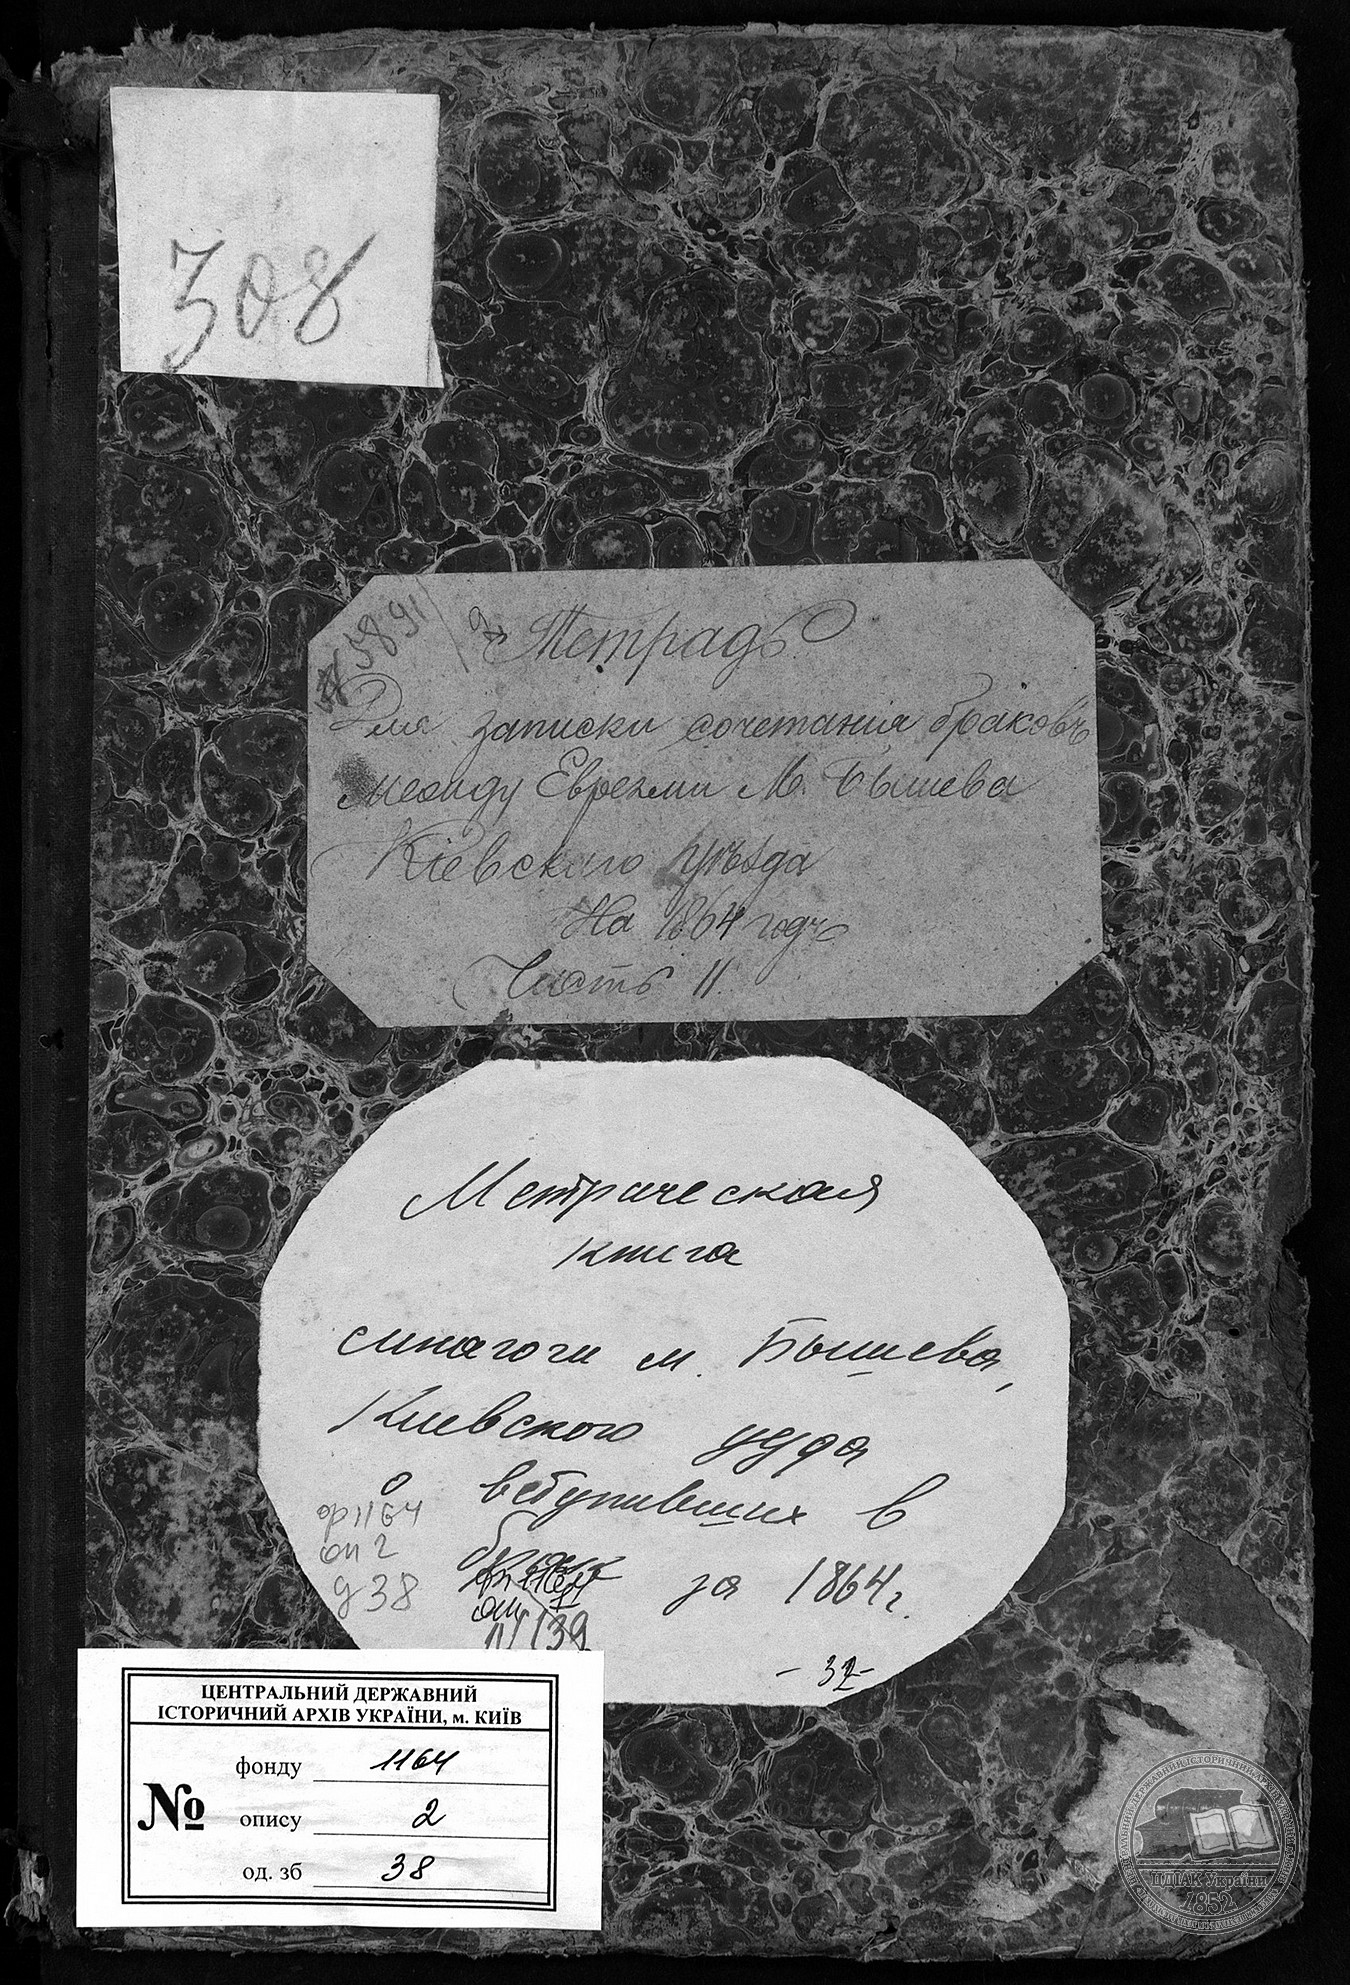 308
№ 5891
Тетрадь
Для записки сочетания браковъ
между Евреями М. Бышева
Кіевскаго уѣзда
На 1864 годъ
Часть II.
Метрическая
книга
синагоги м. Бышева,
Киевского уезда
о вступивших в
брак за 1864г.
ф 1164
оп 2
д 38
-32-
ЦЕНТРАЛЬНИЙ ДЕРЖАВНИЙ
ІСТОРИЧНИЙ АРХІВ УКРАЇНИ, м. КИЇВ
№
фонду 1164
опису 2
од. зб 38
ЦДІАК України
1852